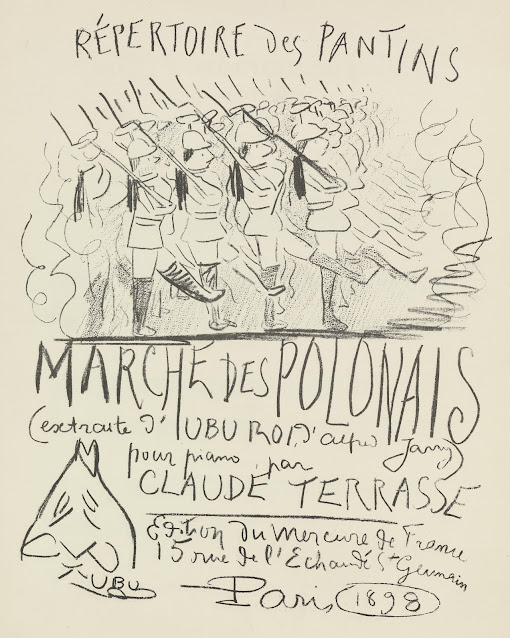 RÉPERTOIRE des PANTINS
MARCHE DES POLONAIS
(extraite d'UBU ROI, d'alfred Jarry)
pour piano, par
CLAUDE TERRASSE
UBU
Edition du Mercure de France
15 rue de l'Echaudé St Germain
Paris 1898